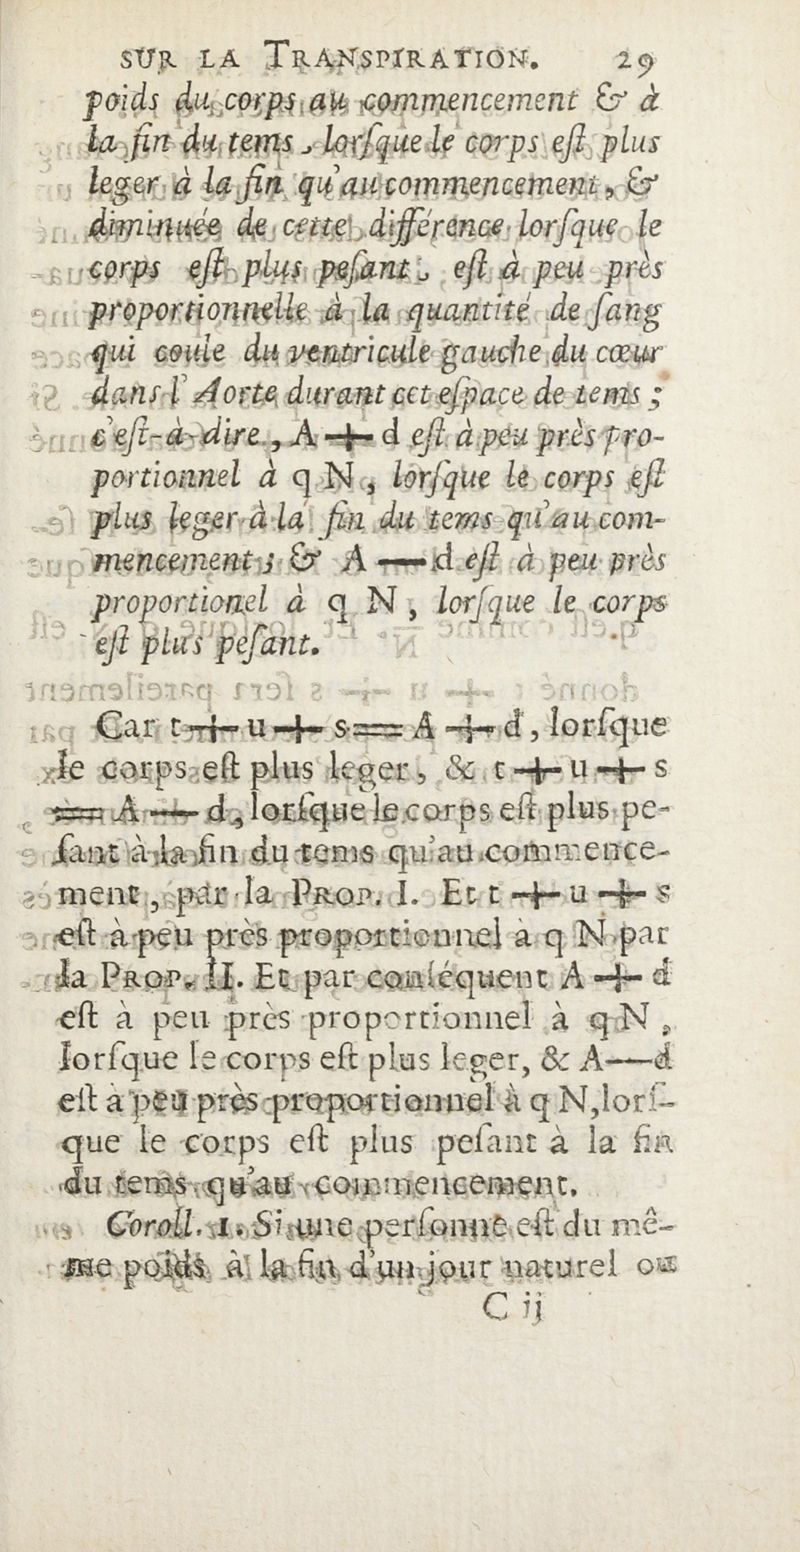 SUR LA TRANSPIRATION. 29
poids du corps au commencement & à
la fin du tems, lorſque le corps eſt plus
leger à la fin qu'au commencement, &
diminuée de cette différence lorſque le
corps eſt plus peſant, eſt à peu près
proportionnelle à la quantité de ſang
qui coule du ventricule gauche du cœur
dans l'Aorte durant cet eſpace de tems ;
c'eſt-à-dire, A + d eſt à peu près pro-
portionnel à q N, lorſque le corps eſt
plus leger à la fin du tems qu'au com-
mencement; & A — d eſt à peu près
proportionel à q N, lorſque le corps
eſt plus peſant.
Car t + u + s = A + d, lorſque
le corps eſt plus leger, & t + u + s
= A — d, lorſque le corps eſt plus pe-
ſant à la fin du tems qu'au commence-
ment, par la PROP. I. Et t + u + s
eſt à peu près proportionnel à q N par
la PROP. II. Et par conſéquent A + d
eſt à peu près proportionnel à q N,
lorſque le corps eſt plus leger, & A — d
eſt à peu près proportionnel à q N, lorſ-
que le corps eſt plus peſant à la fin
du tems qu'au commencement.
Coroll. 1. Si une perſonne eſt du mê-
me poids à la fin d'un jour naturel ou
C ij